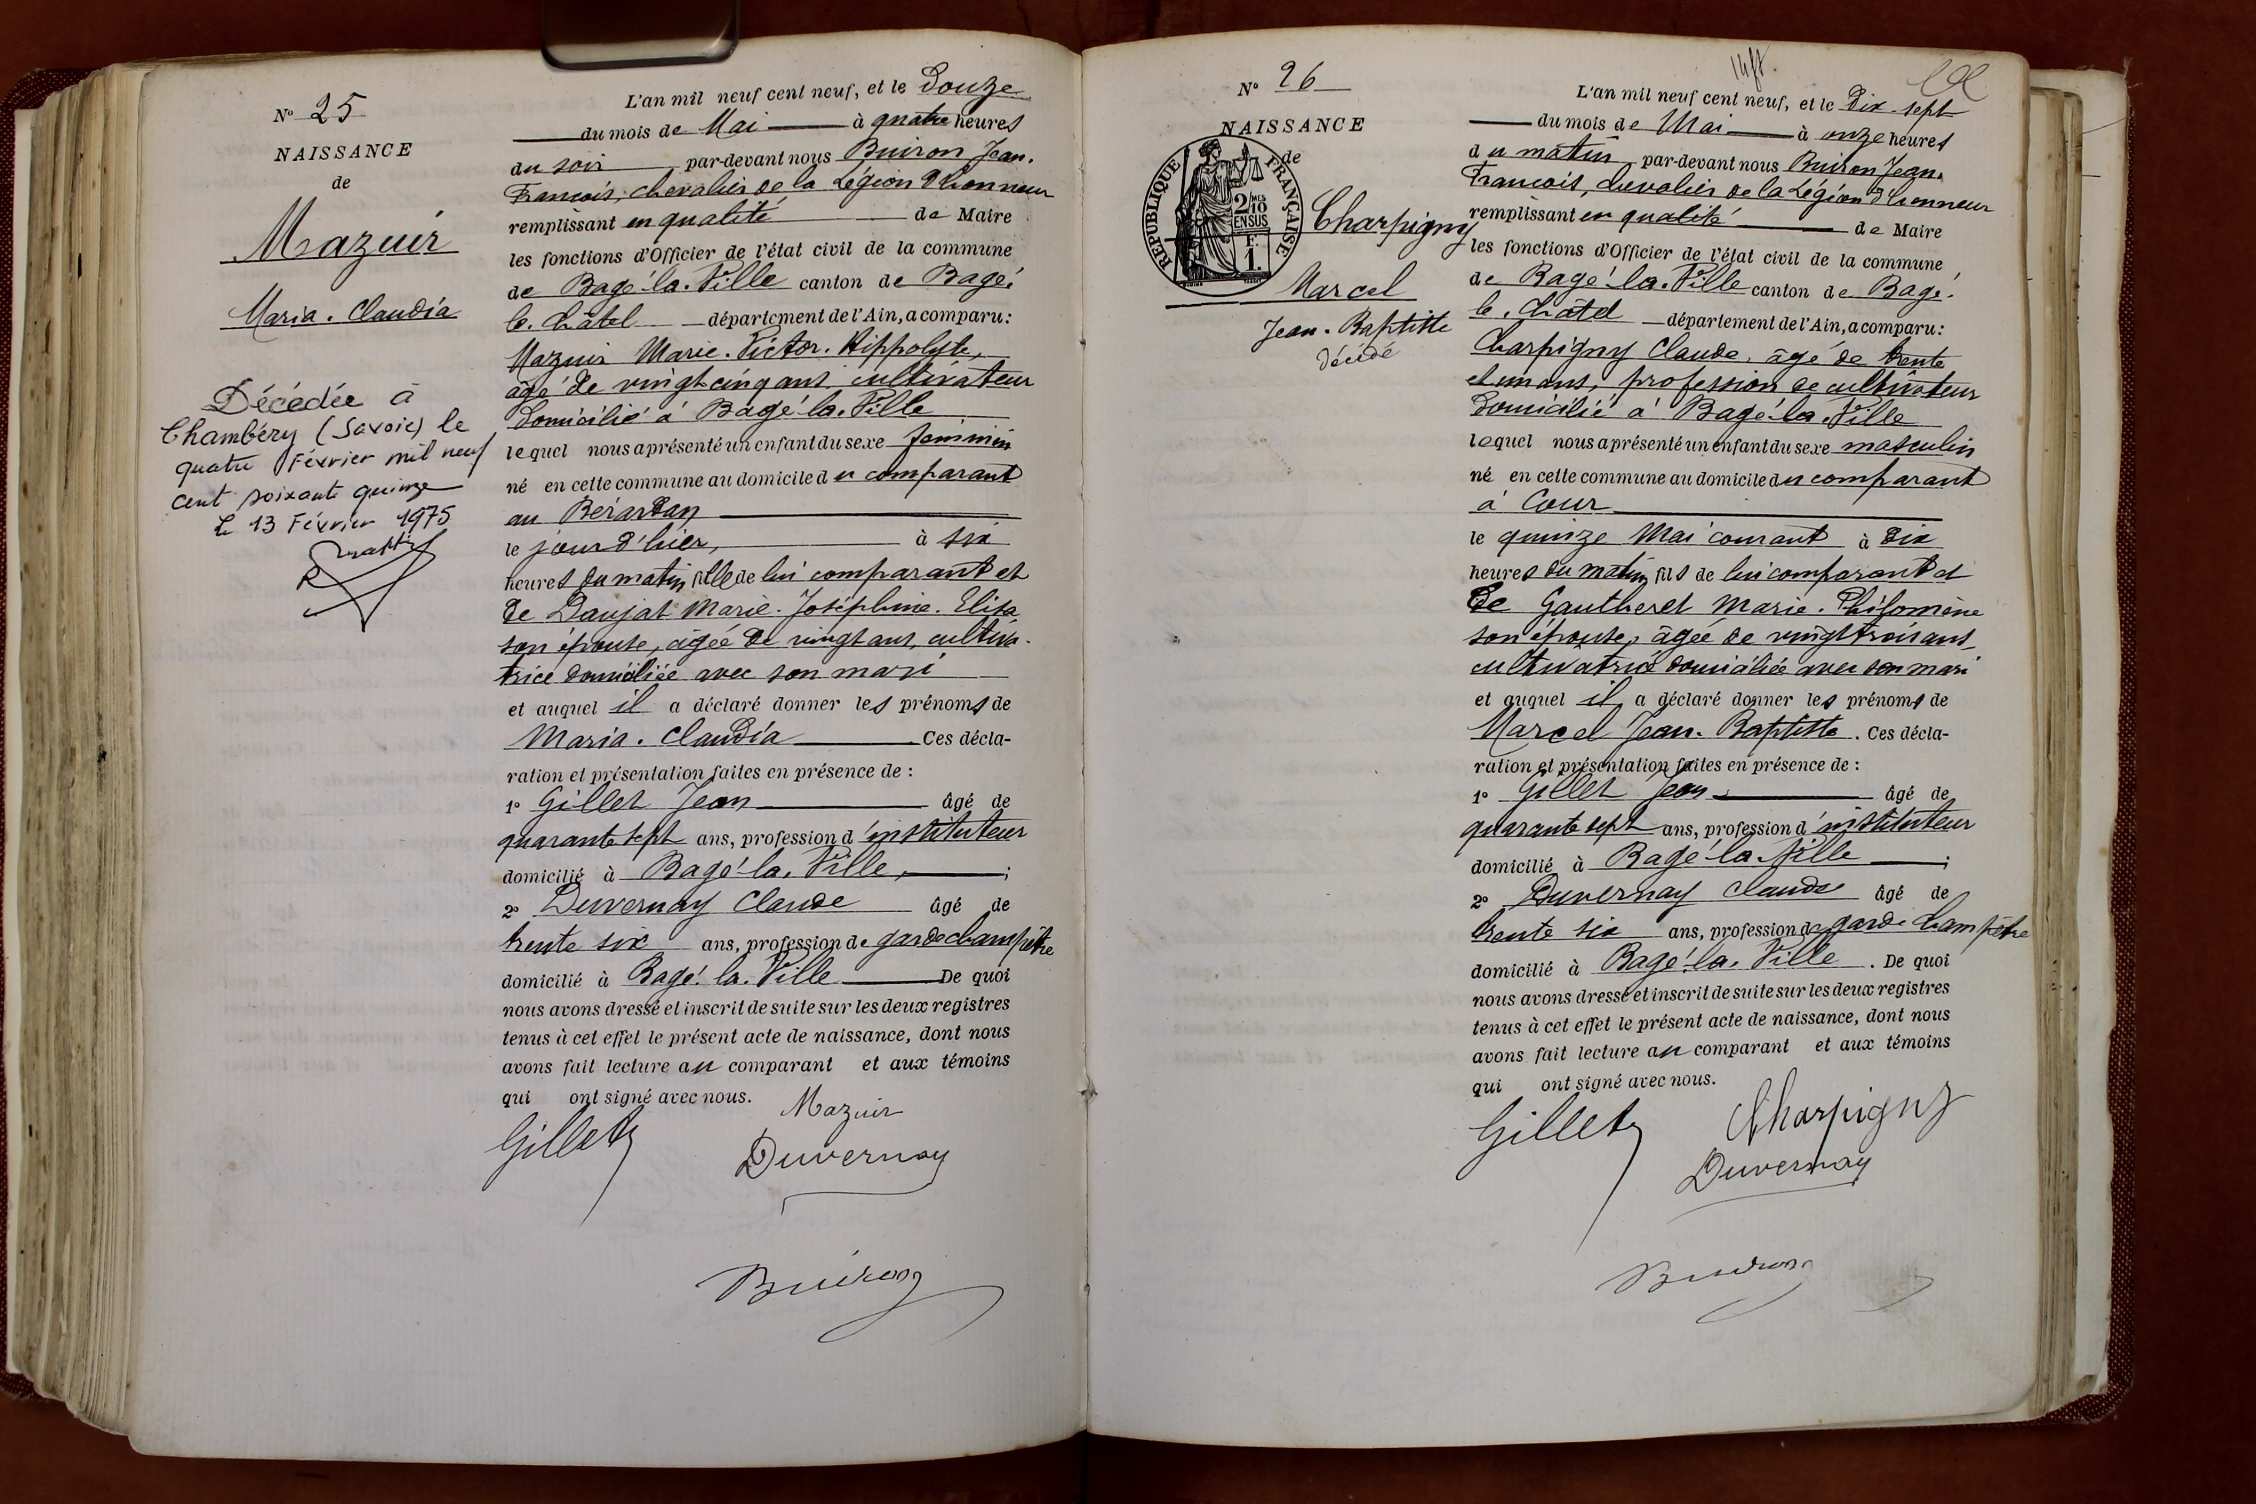 N° 25
NAISSANCE
de
Mazuir
Maria. Claudia
Décédée à
Chambéry (Savoie) le
quatre Février mil neuf
cent soixante quinze
Le 13 Février 1975
L'an mil neuf cent neuf, et le Douze
du mois de Mai à quatre heures
du soir par-devant nous Buiron Jean.
François, chevalier de la Légion d'honneur
remplissant en qualité de Maire
les fonctions d'Officier de l'état civil de la commune
de Bagé-la-Ville canton de Bagé-
le-Châtel département de l'Ain, a comparu:
Mazuir Marie. Victor. Hippolyte,
âgé de vingt cinq ans cultivateur
domicilié à Bagé-la-Ville
lequel nous a présenté un enfant du sexe féminin
né en cette commune au domicile du comparant
au Bérardan
le jour d'hier, à six
heures du matin fille de lui comparant et
de Daujat Marie. Joséphine. Elisa
son épouse, agée de vingt ans, cultiva-
trice domiciliée avec son mari
et auquel il a déclaré donner les prénoms de
Maria. Claudia Ces décla-
ration et présentation faites en présence de :
1° Gillet Jean âgé de
quarante sept ans, profession d'instituteur
domicilié à Bagé-la-Ville, ;
2° Duvernay Claude âgé de
trente six ans, profession de garde champêtre
domicilié à Bagé-la-Ville De quoi
nous avons dressé et inscrit de suite sur les deux registres
tenus à cet effet le présent acte de naissance, dont nous
avons fait lecture au comparant et aux témoins
qui ont signé avec nous.
Mazuir
Gillet
Duvernay
Buiron
N° 26
NAISSANCE
de
REPUBLIQUE FRANÇAISE
2/10 MES
EN SUS
F.
1.
Charpigny
Marcel
Jean. Baptiste
décédé
L'an mil neuf cent neuf, et le Dix sept
du mois de Mai à onze heures
du matin par-devant nous Buiron Jean.
François, chevalier de la Légion d'honneur
remplissant en qualité de Maire
les fonctions d'Officier de l'état civil de la commune
de Bagé-la-Ville canton de Bagé-
le-Châtel département de l'Ain, a comparu:
Charpigny Claude, âgé de trente
et un ans, profession de cultivateur
domicilié à Bagé-la-Ville
lequel nous a présenté un enfant du sexe masculin
né en cette commune au domicile du comparant
à Cour
le quinze Mai courant à dix
heures du matin fils de lui comparant et
de Gautheret Marie. Philomène
son épouse, âgée de vingt trois ans
cultivatrice domiciliée avec son mari
et auquel il a déclaré donner les prénoms de
Marcel Jean. Baptiste. Ces décla-
ration et présentation faites en présence de :
1° Gillet Jean âgé de
quarante sept ans, profession d'instituteur
domicilié à Bagé-la-Ville ;
2° Duvernay Claude âgé de
trente six ans, profession de garde champêtre
domicilié à Bagé-la-Ville . De quoi
nous avons dressé et inscrit de suite sur les deux registres
tenus à cet effet le présent acte de naissance, dont nous
avons fait lecture au comparant et aux témoins
qui ont signé avec nous.
Gillet
Charpigny
Duvernay
Buiron